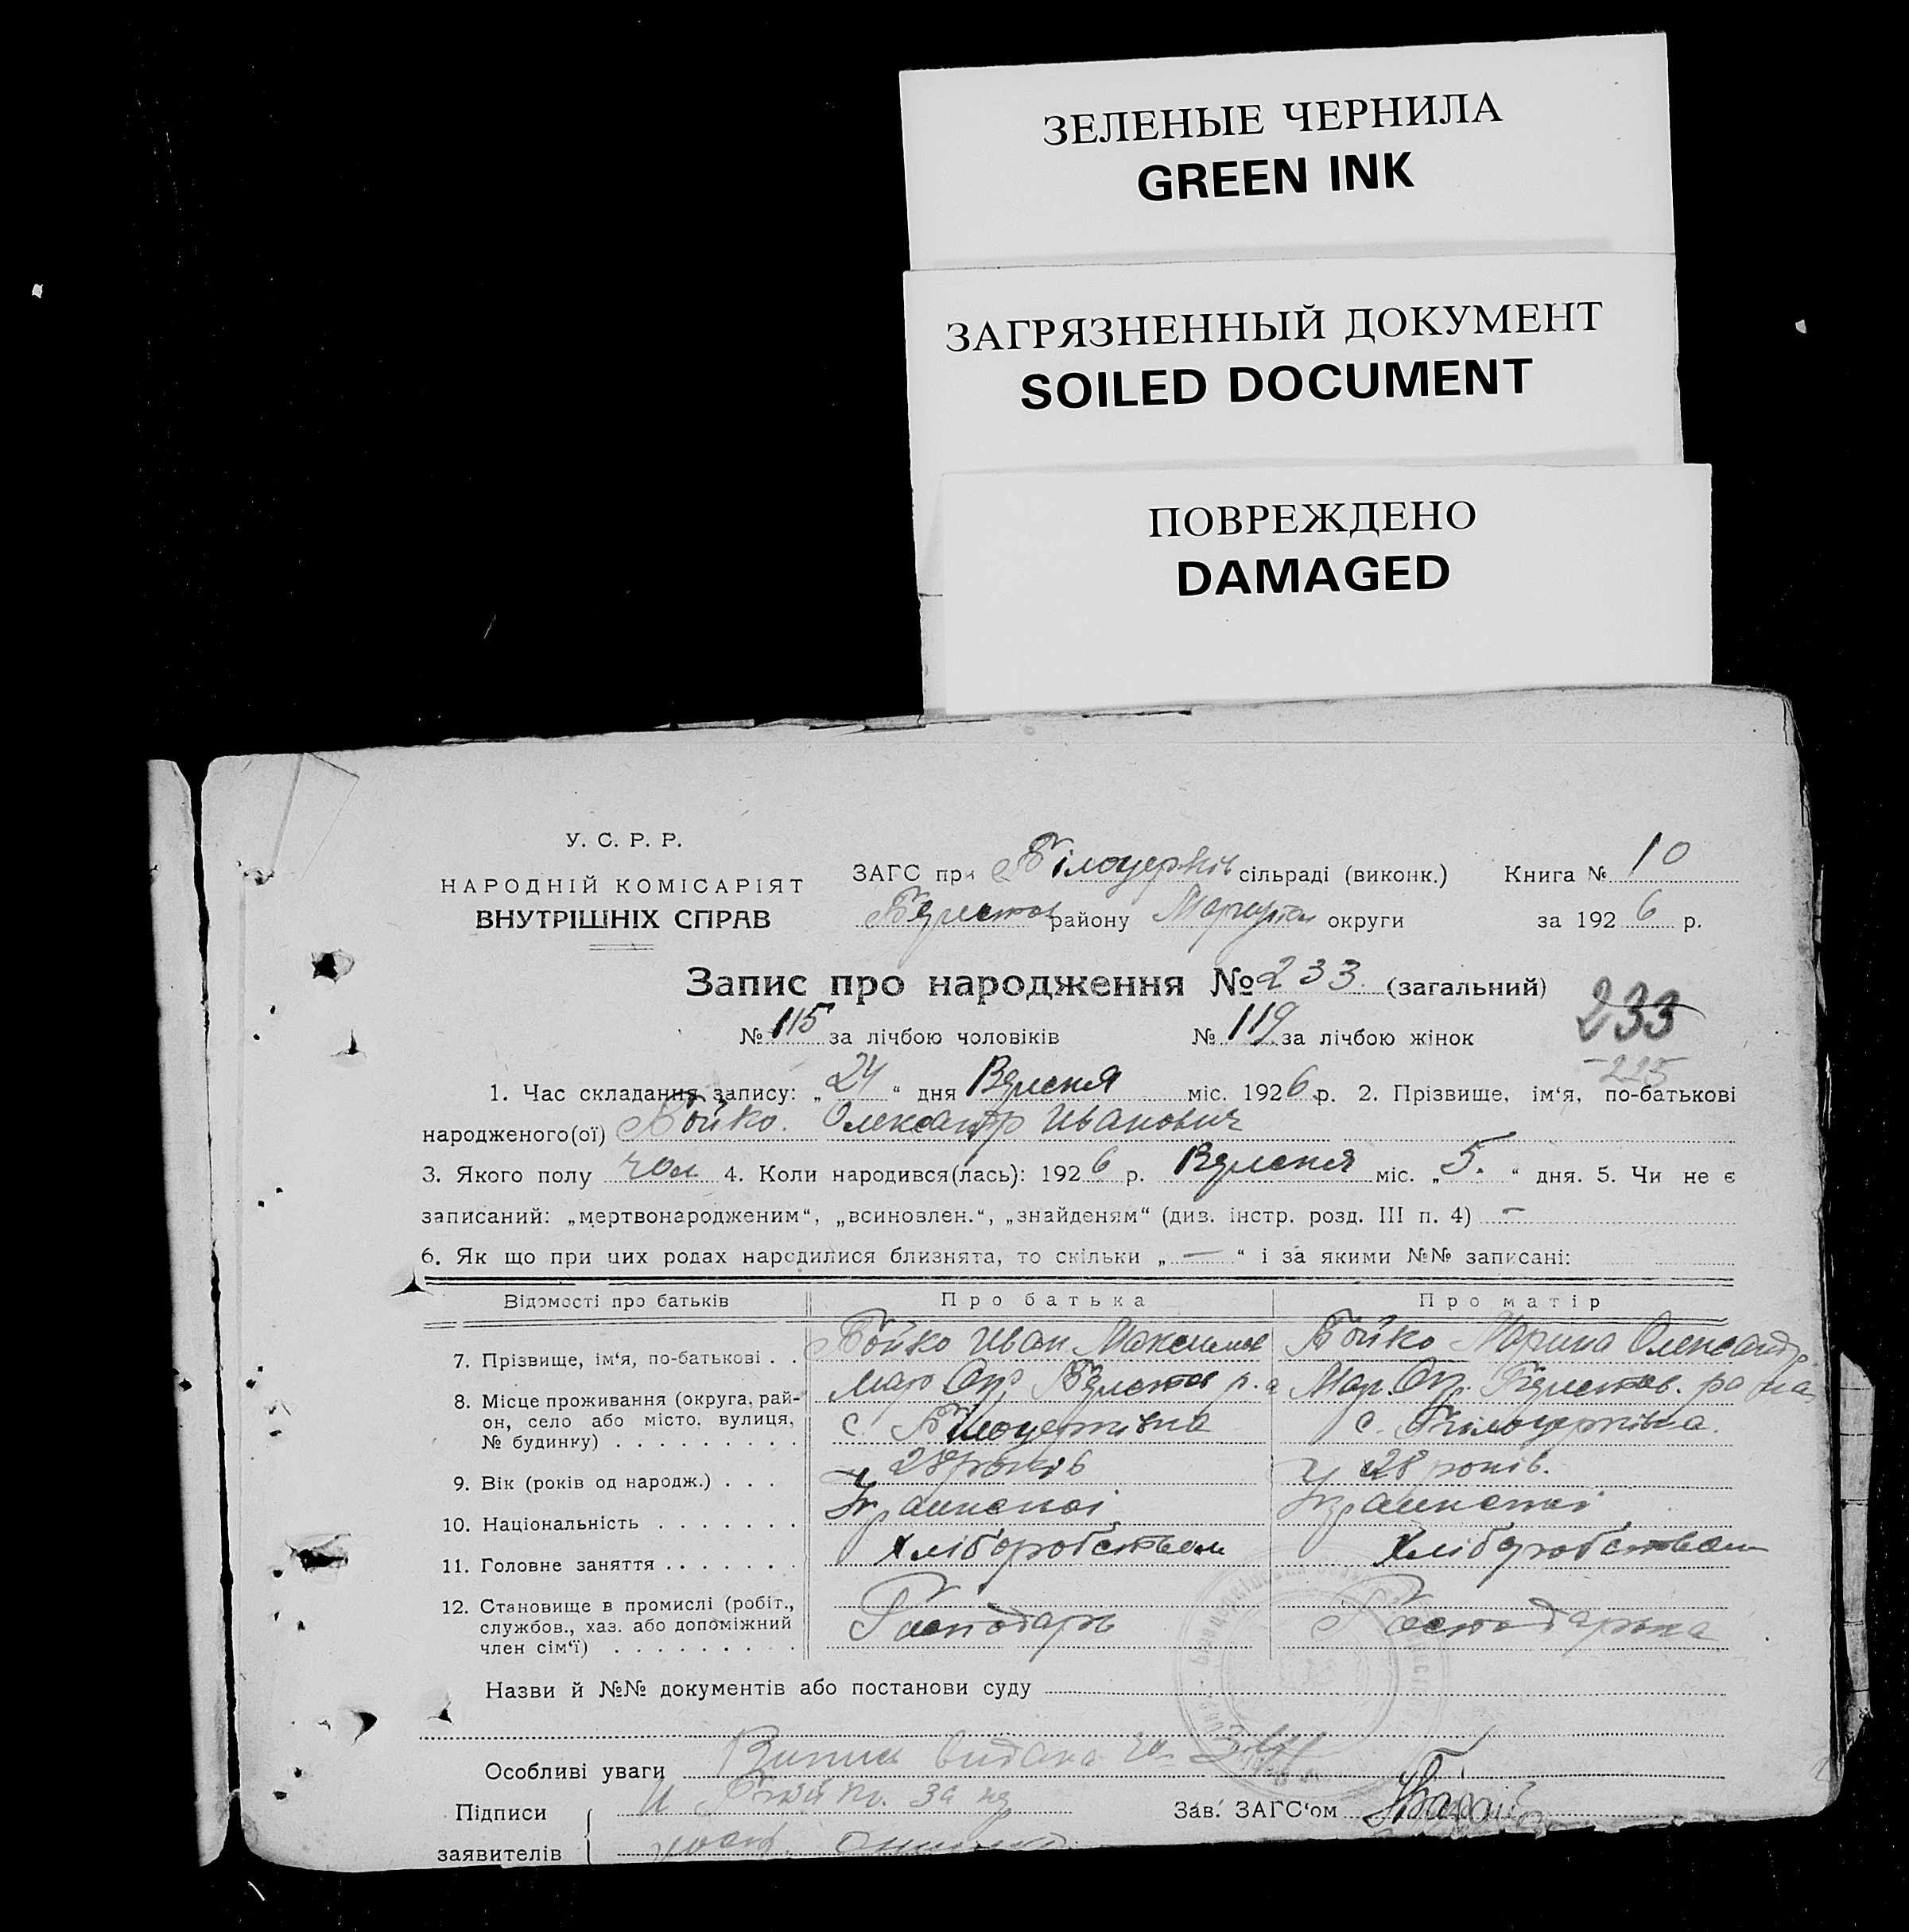 ЗЕЛЕНЫЕ ЧЕРНИЛА
GREEN INK
ЗАГРЯЗНЕННЫЙ ДОКУМЕНТ
SOILED DOCUMENT
ПОВРЕЖДЕНО
DAMAGED
У. С. Р. Р.
НАРОДНІЙ КОМІСАРІЯТ
ВНУТРІШНІХ СПРАВ
ЗАГС при Білоцерків сільраді (виконк.) Книга № 10
району округи за 1926 р.
Запис про народження № 233 (загальний)
233
№ 115 за лічбою чоловіків № 119 за лічбою жінок
225
1. Час складання запису: „24“ дня Вересня міс. 1926 р. 2. Прізвище, ім‘я, по-батькові
народженого(ої) Бойко Олександр Иванович
3. Якого полу чол 4. Коли народився(лась): 1926 р. Вересня міс. „5.“ дня. 5. Чи не є
записаний: „мертвонародженим“, „всиновлен.“, „знайденям“ (див. інстр. розд. III п. 4) —
6. Як що при цих родах народилися близнята, то скільки „—“ і за якими №№ записані:
Відомості про батьків Про батька Про матір
7. Прізвище, ім‘я, по-батькові . . Бойко Иван Максимов Бойко Марина Олександр.
8. Місце проживання (округа, рай-
он, село або місто, вулиця,
№ будинку) . . . . . . . . . Мар Окр р. а Мар. Окр.
с. Білоцерківка с. Білоцерківка.
9. Вік (років од народж.) . . . 28 років 28 років.
10. Національність . . . . . . . Украинскоі Украинскоі
11. Головне заняття . . . . . . . Хліборобством Хліборобством
12. Становище в промислі (робіт.,
службов., хаз. або допоміжний
член сім‘ї) . . . . . . . . Господарь Господарька
Назви й №№ документів або постанови суду
Особливі уваги Випис видана за
Підписи
заявителів
И Бойко. за
Зав. ЗАГС‘ом